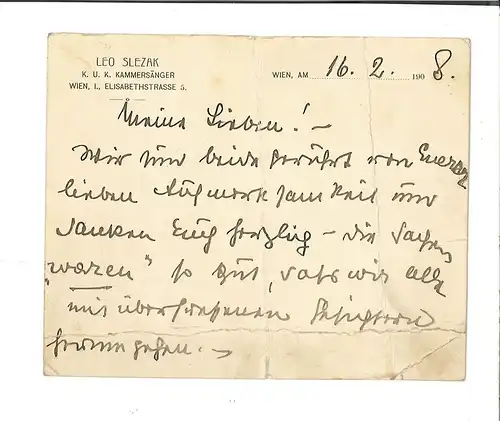 LEO SLEZAK
K. U. K. KAMMERSÄNGER
WIEN, I., ELISABETHSTRASSE 5.
WIEN, AM 16. 2. 190 8.
Meine Lieben! –
Wir sind beide gerührt von Eurer
lieben Aufmerksamkeit und
danken Euch herzlich – die Sachen
"waren" so gut, dass wir alle
mit überfressenen Gesichtern
herumgehen. –